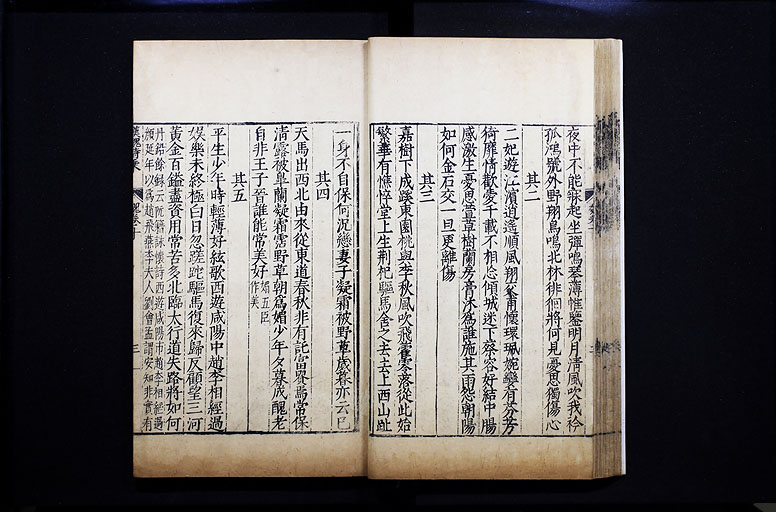 夜中不能寐起坐彈鳴琴薄帷鑒明月清風吹我衿
孤鴻號外野翔鳥鳴北林徘徊將何見憂思獨傷心
其二
二妃遊江濱逍遙順風翔交甫懷環珮婉孌有芬芳
猗靡情歡愛千載不相忘傾城迷下蔡容好結中腸
感激生憂思萱草樹蘭房膏沐為誰施其雨怨朝陽
如何金石交一旦更離傷
其三
嘉樹下成蹊東園桃與李秋風吹飛藿零落從此始
繁華有憔悴堂上生荊杞驅馬舍之去去上西山趾
一身不自保何況戀妻子凝霜被野草歲暮亦云已
其四
天馬出西北由來從東道春秋非有託富貴焉常保
清露被皐蘭凝霜霑野草朝為媚少年夕暮成醜老
自非王子晉誰能常美好
媚五臣
作美
其五
平生少年時輕薄好絃歌西遊咸陽中趙李相經過
娛樂未終極白日忽蹉跎驅馬復來歸反顧望三河
黃金百鎰盡資用常苦多北臨太行道失路將如何
丹鉛餘錄云阮籍詠懷詩西遊咸陽市趙李相經過
顏延年以為趙飛燕李夫人劉會孟謂安知非實有
三